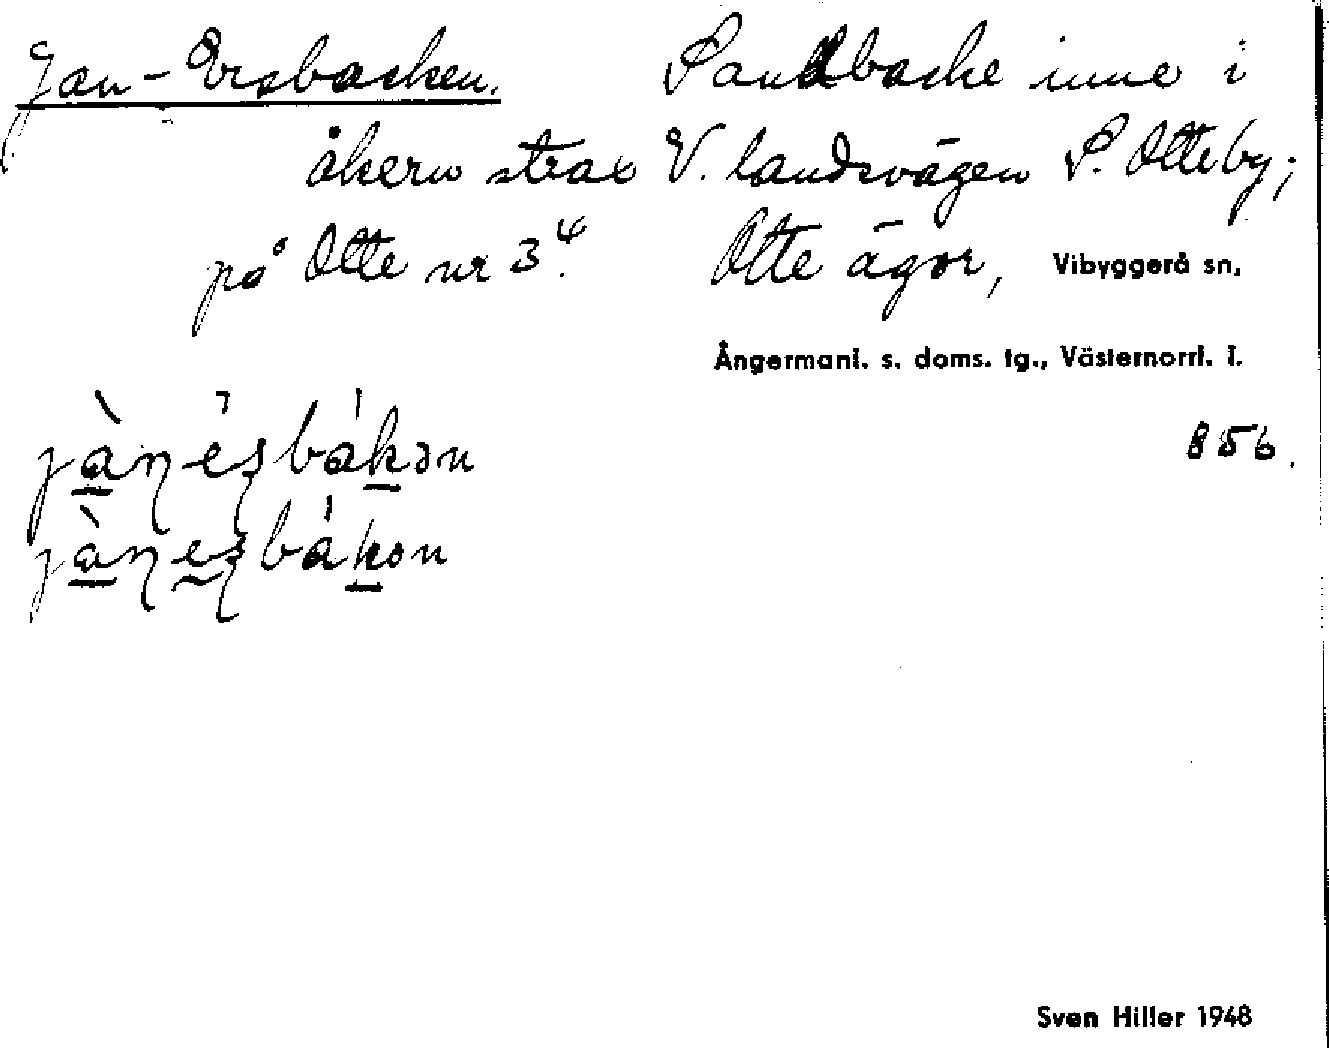 Jan-Ersbacken. Sandbacke inne i
åkern strax V. landsvägen S. Olle by;
på Olle nr 3⁴. Olle ägor, Vibyggerå sn,
Ångermanl. s. doms. tg., Västernorrl. l.
856.
Sven Hiller 1948